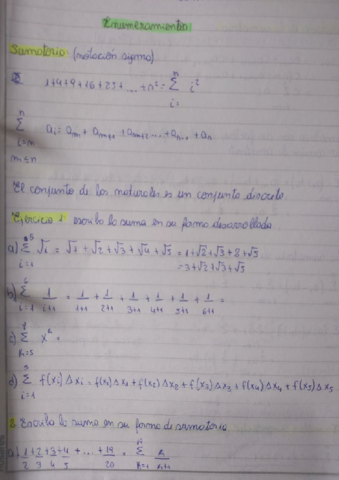 Enumeramiento
Sumatorio (notación sigma)
1+4+9+16+25+...+n² = Σ i²
n
i=
n
Σ ai = am + am+1 + am+2 ... + an-1 + an
i=m
m≤n
El conjunto de los naturales es un conjunto discreto
Ejercicio 1 escriba la suma en su forma desarrollada
a) Σ √i = √1 + √2 + √3 + √4 + √5 = 1+√2+√3+2+√5
i=1
= 3+√2+√3+√5
b) Σ 1/i+1 = 1/1+1 + 1/2+1 + 1/3+1 + 1/4+1 + 1/5+1 + 1/6+1 =
i=1
c) Σ x^k =
k=5
d) Σ f(xi) Δxi = f(x1) Δx1 + f(x2) Δx2 + f(x3) Δx3 + f(x4) Δx4 + f(x5) Δx5
i=1
2. Escriba la suma en su forma de sumatorio
a) 1/2 + 2/3 + 3/4 + 4/5 + ... + 19/20 = Σ k/k+1
k=1